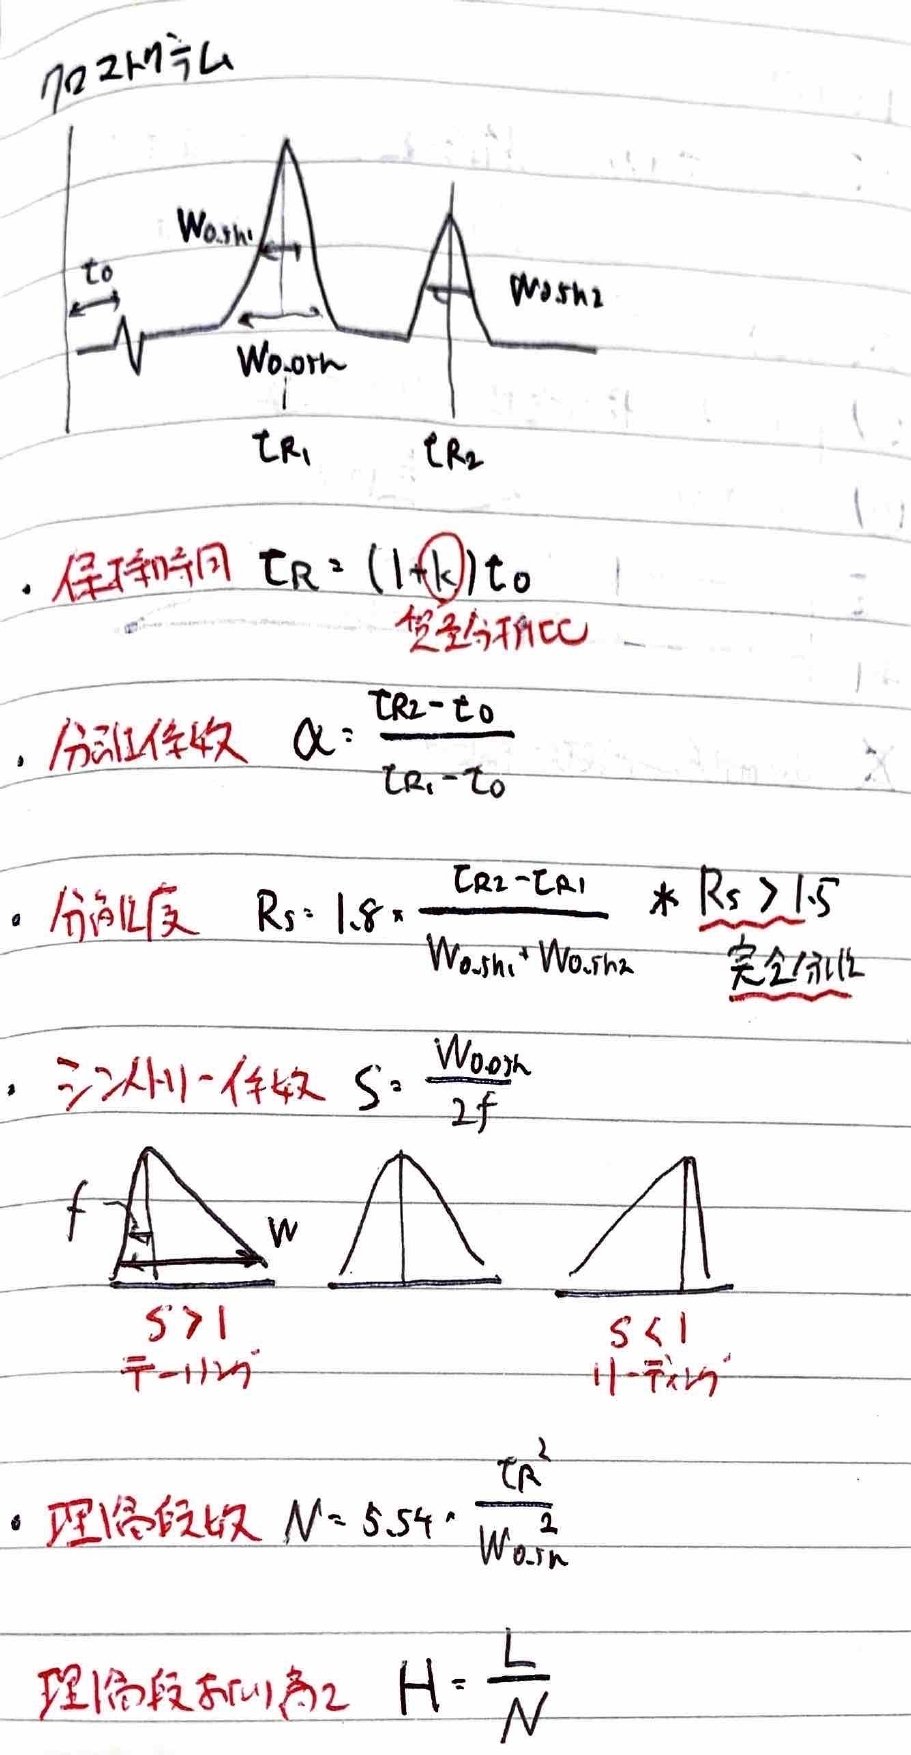 クロマトグラム
W0.5h1
t0
W0.5h2
W0.05h
tR1 tR2
・保持時間 tR = (1+k)t0
質量分布比
・分離係数 α = (tR2-t0)/(tR1-t0)
・分離度 Rs = 1.8 × (tR2-tR1)/(W0.5h1+W0.5h2) * Rs > 1.5
完全分離
・シンメトリー係数 S = W0.05h/2f
f W
S > 1 S < 1
テーリング リーディング
・理論段数 N = 5.54・tR²/W0.5h²
理論段あたり高さ H = L/N